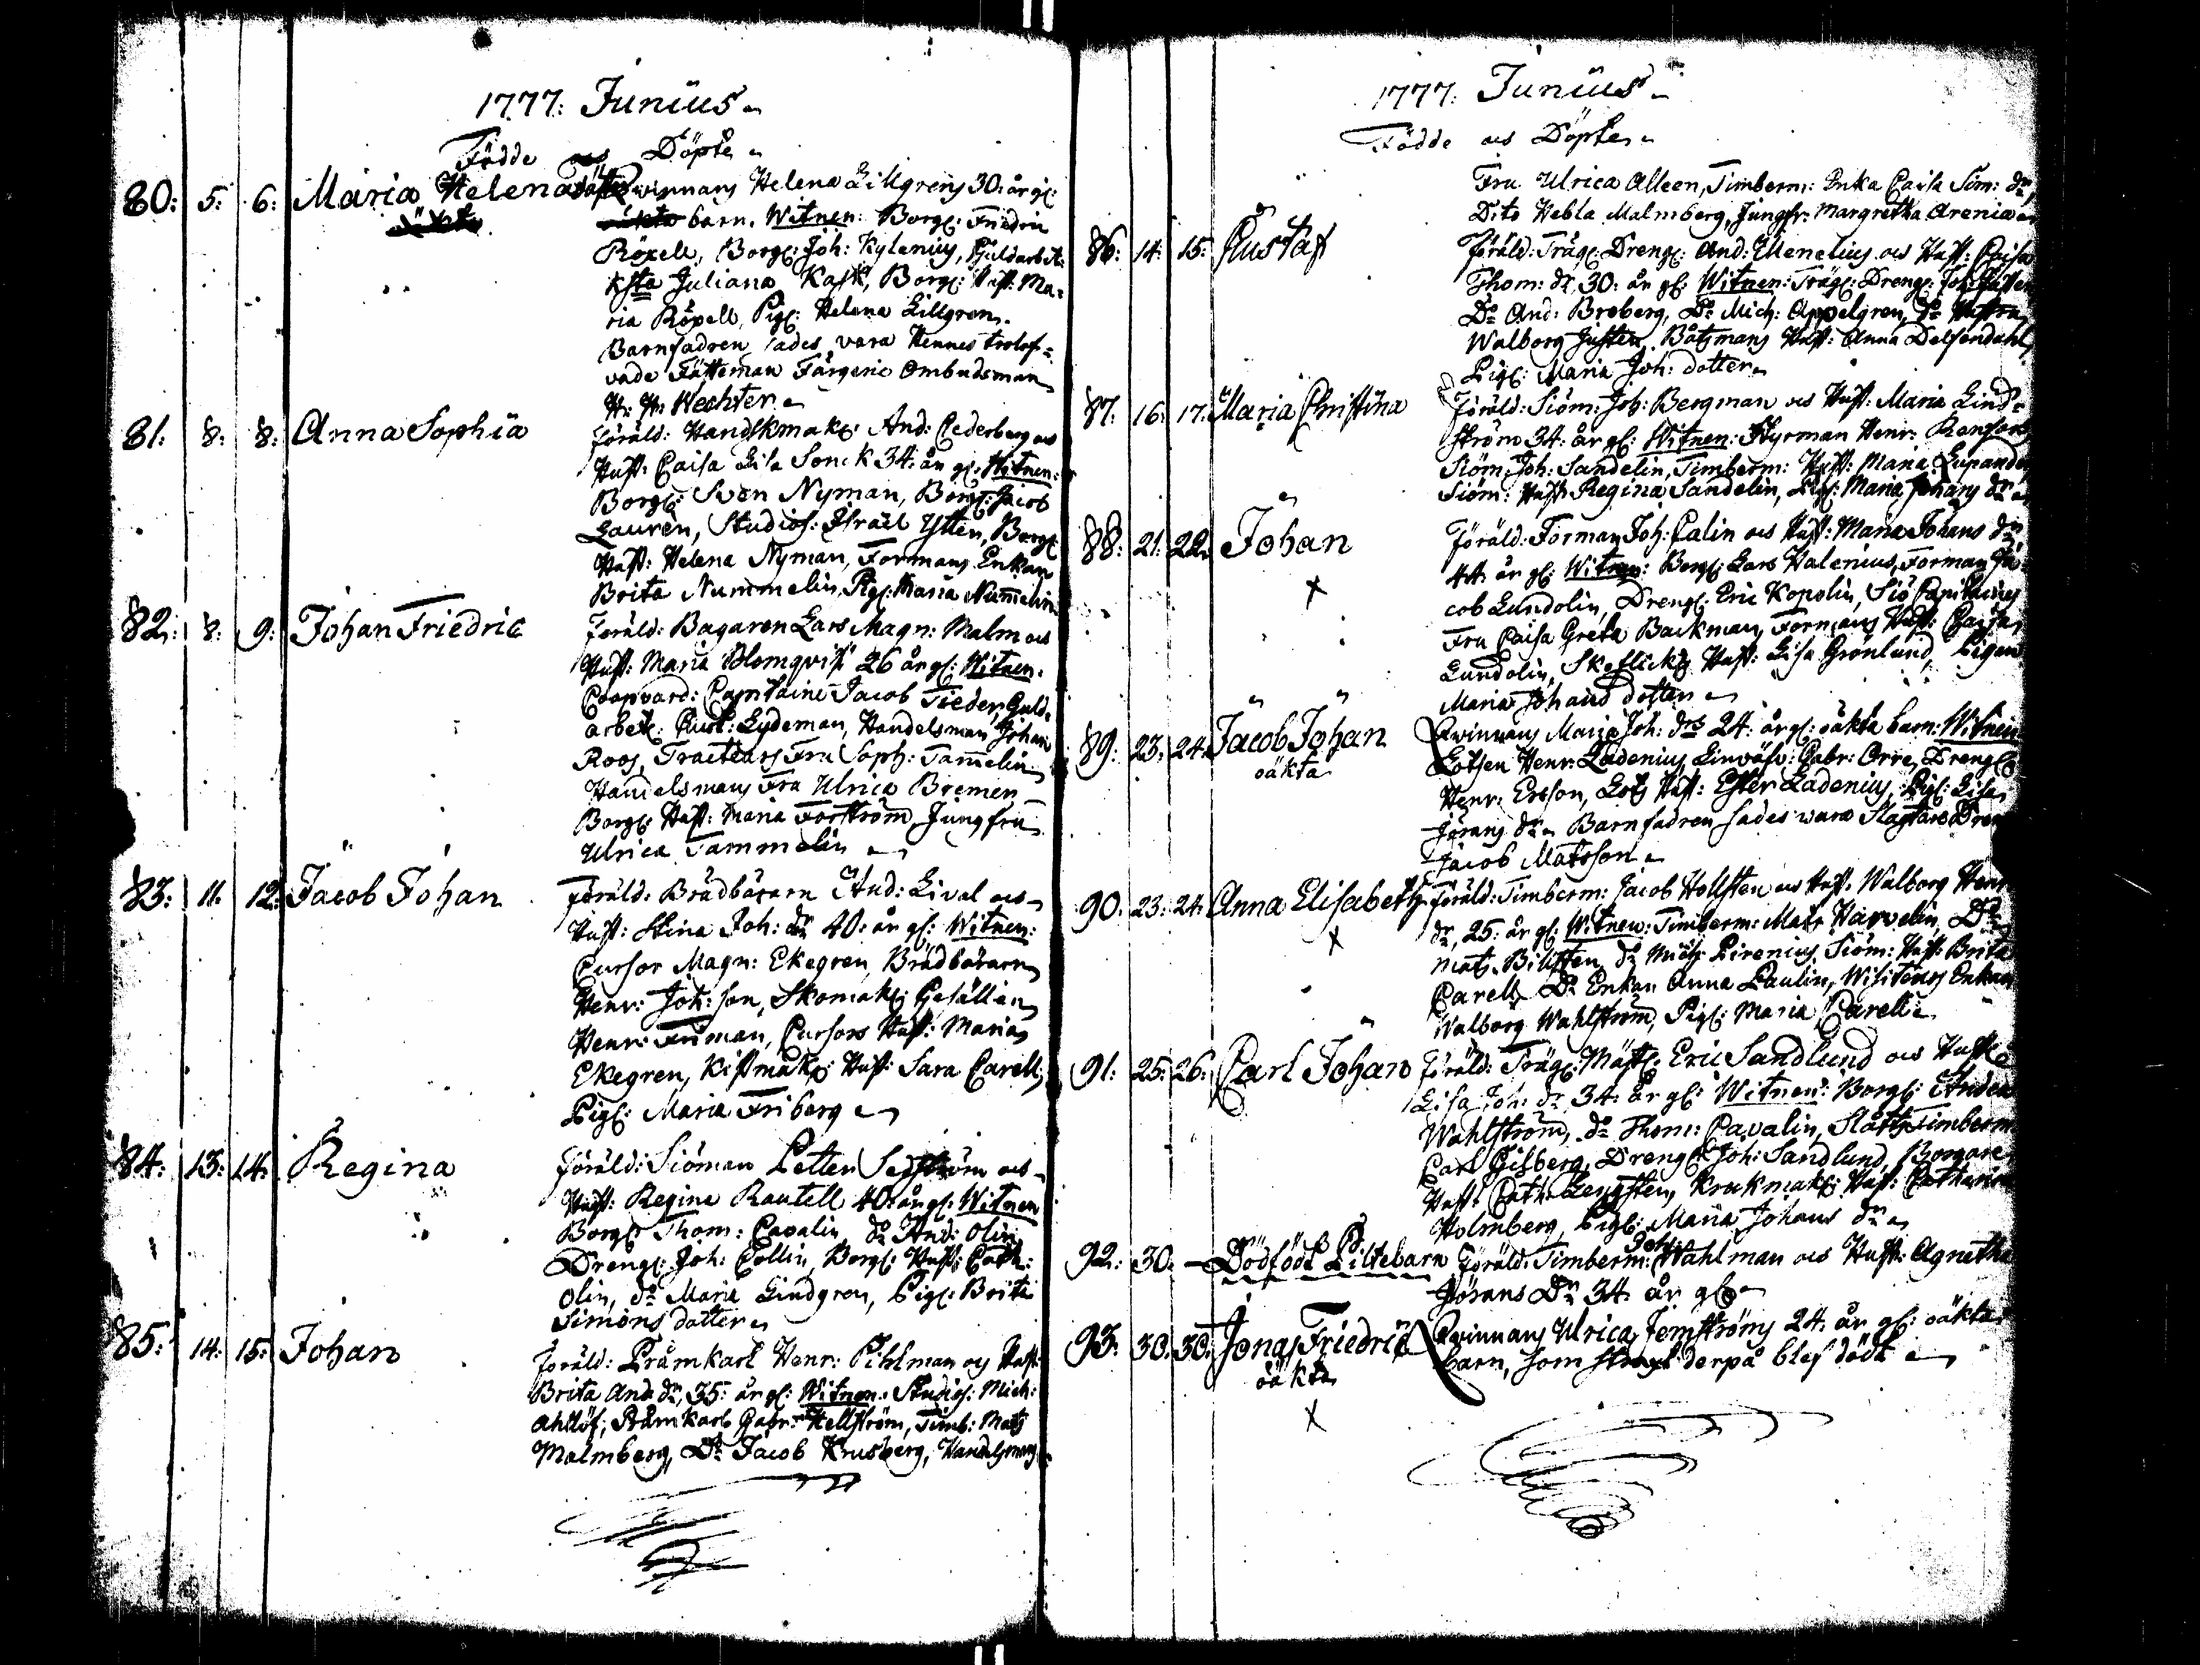 1777: Junius
Födde och Döpte
80: 5: 6: Maria Helena Qwinnans Helena Lillgrens 30: år gl:
barn. Witnen: Borgl: Friedric
Röxell, Borgl: Joh: Kylenius, Guldarbet:
Juliana Kask, Borgl: Hust: Ma-
ria Röxell, Pigl: Helena Lillgren.
Barnfadren sades vara Hennes trolof-
vade Fästeman Färgerie Ombudsman
Hr: Hr: Wechter
81: 8: 8: Anna Sophia Föräld: Handskmak: And: Cederberg och
Hust: Caisa Lisa Sonck 34: år gl: Witnen:
Borgl: Sven Nyman, Borgl: Jacob
Lauren, Studios: Israel Ysten, Borgl
Hust: Helena Nyman, Formans Enkan
Brita Nummelin, Pigl: Maria Numelin
82: 8: 9: Johan Friedric Föräld: Bagaren Lars Magn: Malm och
Hust: Maria Blomqvist 26 år gl: Witnen.
Coopvard: Capitaine Jacob Tieder, Guld-
arbet: Gust: Lydeman, Handelsman Johan
Roos, Tracteurs Fru Soph: Tamelin
Handelsmans Fru Ulrica Bremer
Borgl: Hust: Maria Forström, Jungfru
Ulrica Tammelin
83: 11: 12: Jacob Johan Föräld: Brädbäraren And: Lival och
Hust: Stina Joh: dr 40: år gl: Witnen:
Cursor Magn: Ekegren, Brädbäraren
Henr: Joh: son, Skomak: Gesällen
Henr: Friman, Cursors Hust: Maria
Ekegren, Kistmak: Hust: Sara Carell,
Pigl: Maria Friberg
84: 13: 14: Regina Föräld: Siöman Petter Sedström och
Hust: Regina Rautell 40: år gl: Witnen
Borgl: Thom: Cavalin, do And: Olin
Drengl: Joh: Collin, Borgl: Hust: Cath:
Olin, do Maria Lindgren, Pigl: Brita
Simons dotter
85: 14: 15: Johan Föräld: Pråmkarl Henr: Pihlman och Hust:
Brita And: dr, 35: år gl: Witnen: Studios: Mich:
Ahllöf, Pråmkarl Gabr: Hellström, Timb: Mats
Malmberg, Do Jacob Krusberg, Handelsmans
1777: Junius
Födde och Döpte
Fru Ulrica Alleen, Timberm: Enka Caisa Sim: dr,
Dito Hebla Malmberg, Jungfr: Margretha Arenia
86: 14: 15: Gustaf Föräld: Trägl: Drengl: And: Menelius och Hust: Caisa
Thom: dr 30: år gl: Witnen: Trägl: Drengl: Joh:
Do And: Broberg, Do Mich: Appelgren, Do Hustru
Walborg Justen, Båtsmans Hust: Anna Delfendahl,
Pigl: Maria Joh: dotter
87: 16: 17: Maria Christina Föräld: Siöm: Joh: Bergman och Hust: Maria Lind-
ström 34: år gl: Witnen: Styrman Henr:
Siöm: Joh: Sandelin, Timberm: Hust: Maria Lupander
Siöm: Hust: Regina Sandelin, Pigl: Maria Johans dr
88: 21: 22: Johan Föräld: Forman Joh: Palin och Hust: Maria Johans dr
44 år gl: Witnen: Borgl: Lars Halenius, Forman Ja-
cob Lundolin, Drengl: Eric Kopolin, Siö Capitains
Fru Caisa Greta Backman, Formans Hust: Caisa
Lundolin, Skeflick: Hust: Lisa Grönlund, Pigan
Maria Johans dotter
X
89: 23: 24: Jacob Johan Qwinnans Maria Joh: drs 24: år gl: oäkta barn: Witnen
oäkta Lotsen Henr: Ladenius, Linväfv: Gabr: Orre, Drengl:
Henr: Ersson, Lots Hust: Ester Ladenius, Pigl: Lisa
Jörans dr Barnfadren sades vara Slagtare Dren
Jacob Matsson
90: 23: 24: Anna Elisabeth Föräld: Timberm: Jacob Hollsten och Hust: Walborg Henr
X dr, 25: år gl: Witnen: Timberm: Mats Harvelin, Do
Mats Billsten, do Mich: Pirenius, Siöm: Hust: Brita
Carell Do Enkan Anna Paulin, Wisiteurs Enkan
Walborg Wahlström, Pigl: Maria Carell
91: 25: 26: Carl Johan Föräld: Trägl: Mäst: Eric Sandlund och Hust:
Lisa Joh: dr 34: år gl: Witnen: Borgl: Anders
Wahlström, do Thom: Cavalin, Slotts Timberm
Carl Gisberg, Drengl: Joh: Sandlund, Borgare
Hust: Cath: Lengsten, Krukmak: Hust: Catharina
Holmberg, Pigl: Maria Johans dr
92: 30. — Dödfödt Piltebarn Föräld: Timberm: Joh: Wahlman och Hust: Agnetha
Jörans Dr 34: år gl:
93: 30: 30: Jonas Friedric Qwinnans Ulrica Jemströms 24: år gl: oäkta
oäkta barn, som straxt derpå blef dödt
X